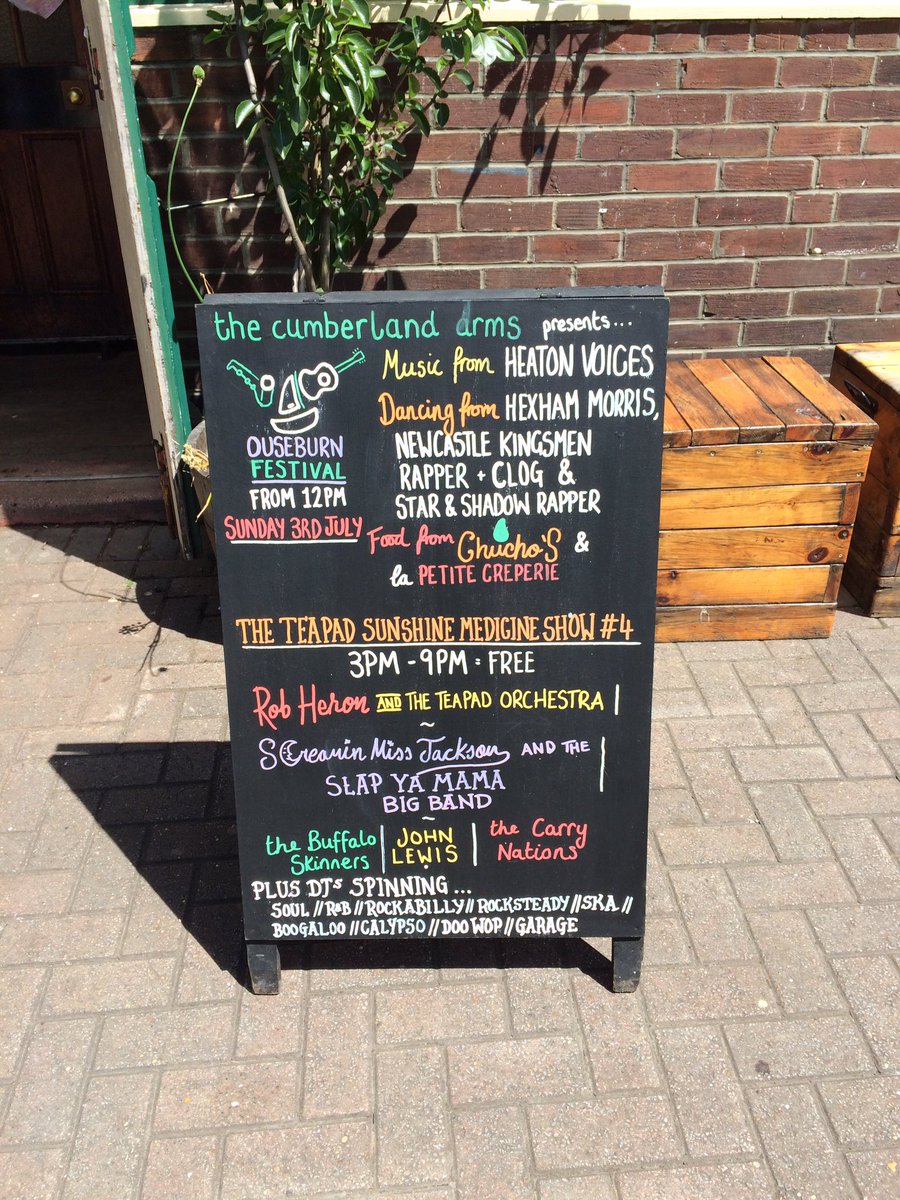 the cumberland arms presents...
OUSEBURN
FESTIVAL
FROM 12PM
SUNDAY 3RD JULY
Music from HEATON VOICES
Dancing from HEXHAM MORRIS,
NEWCASTLE KINGSMEN
RAPPER + CLOG &
STAR & SHADOW RAPPER
Food from Chucho'S &
la PETITE CREPERIE
THE TEAPAD SUNSHINE MEDICINE SHOW #4
3PM - 9PM : FREE
Rob Heron AND THE TEAPAD ORCHESTRA |
~
SCreamin Miss Jackson AND THE
SLAP YA MAMA
BIG BAND
~
the Buffalo Skinners | JOHN LEWIS | the Carry Nations
PLUS DJs SPINNING...
SOUL // R&B // ROCKABILLY // ROCKSTEADY // SKA //
BOOGALOO // CALYPSO // DOO WOP // GARAGE